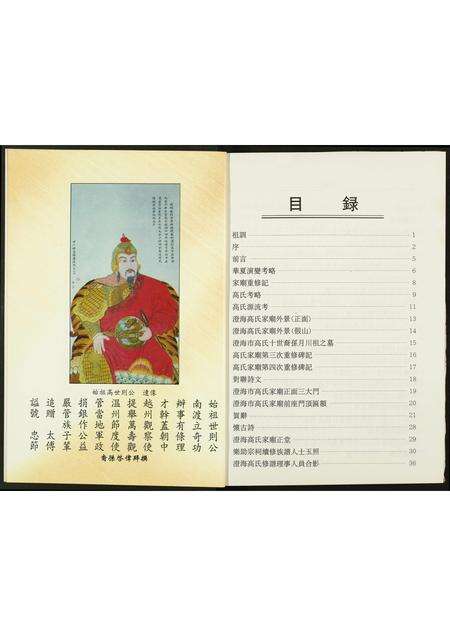 始祖高世則公 遺像
始祖世則公
南渡立奇功
辦事有條理
才幹蓋朝中
越州觀察使
提舉萬壽觀
溫州節度使
管當地軍政
捐銀作公益
嚴管族子軰
追贈 太傅
諡號 忠節
裔孫啓偉拜撰
目錄
祖訓 1
序 2
前言 5
華夏演變考略 6
家廟重修記 8
高氏考略 9
高氏源流考 11
澄海高氏家廟外景(正面) 13
澄海高氏家廟外景(假山) 14
澄海市高氏十世裔孫月川祖之墓 15
高氏家廟第三次重修碑記 16
高氏家廟第四次重修碑記 17
對聯詩文 18
澄海市高氏家廟正面三大門 19
澄海市高氏家廟前座門頂匾額 20
賀辭 21
懷古詩 28
澄海高氏家廟正堂 29
樂助宗祠續修族譜人士玉照 30
澄海高氏修譜理事人員合影 36